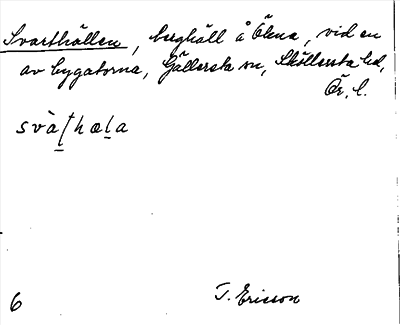 Svarthällen, berghäll å Ökna, vid en
av bygatorna, Gällersta sn, Sköllersta hd,
Ör. l.
svàʈhæḷa
6
T. Ericson